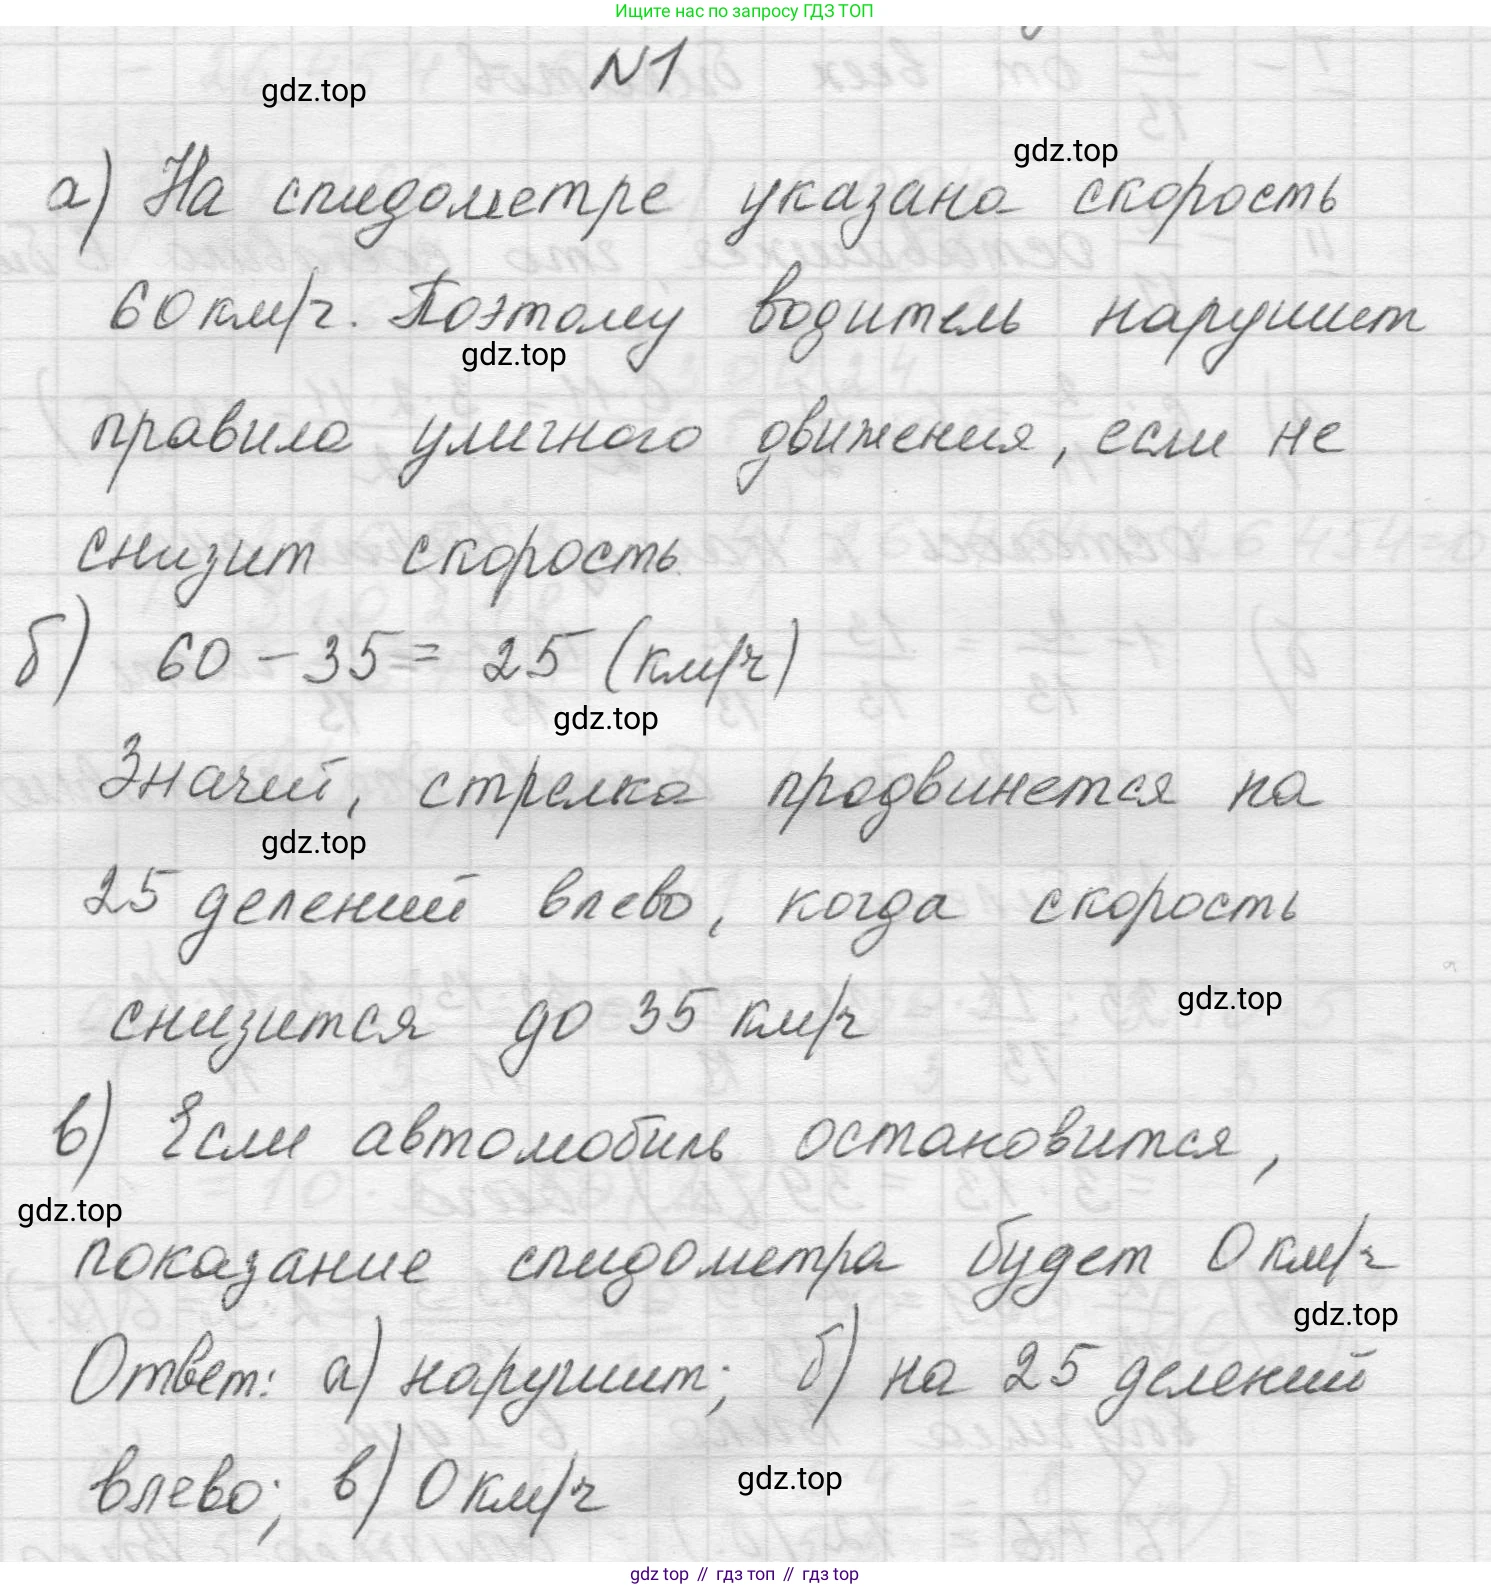 Ищите нас по запросу ГДЗ ТОП
N1
gdz.top
gdz.top
а) На спидометре указана скорость
60 км/ч. Поэтому водитель нарушит
gdz.top
правила уличного движения, если не
снизит скорость.
б) 60 - 35 = 25 (км/ч)
gdz.top
Значит, стрелка продвинется на
gdz.top
25 делений влево, когда скорость
gdz.top
снизится до 35 км/ч
в) Если автомобиль остановится,
gdz.top
показание спидометра будет 0 км/ч
gdz.top
Ответ: а) нарушит; б) на 25 делений
влево; в) 0 км/ч
gdz.top
gdz top // гдз топ // гдз top